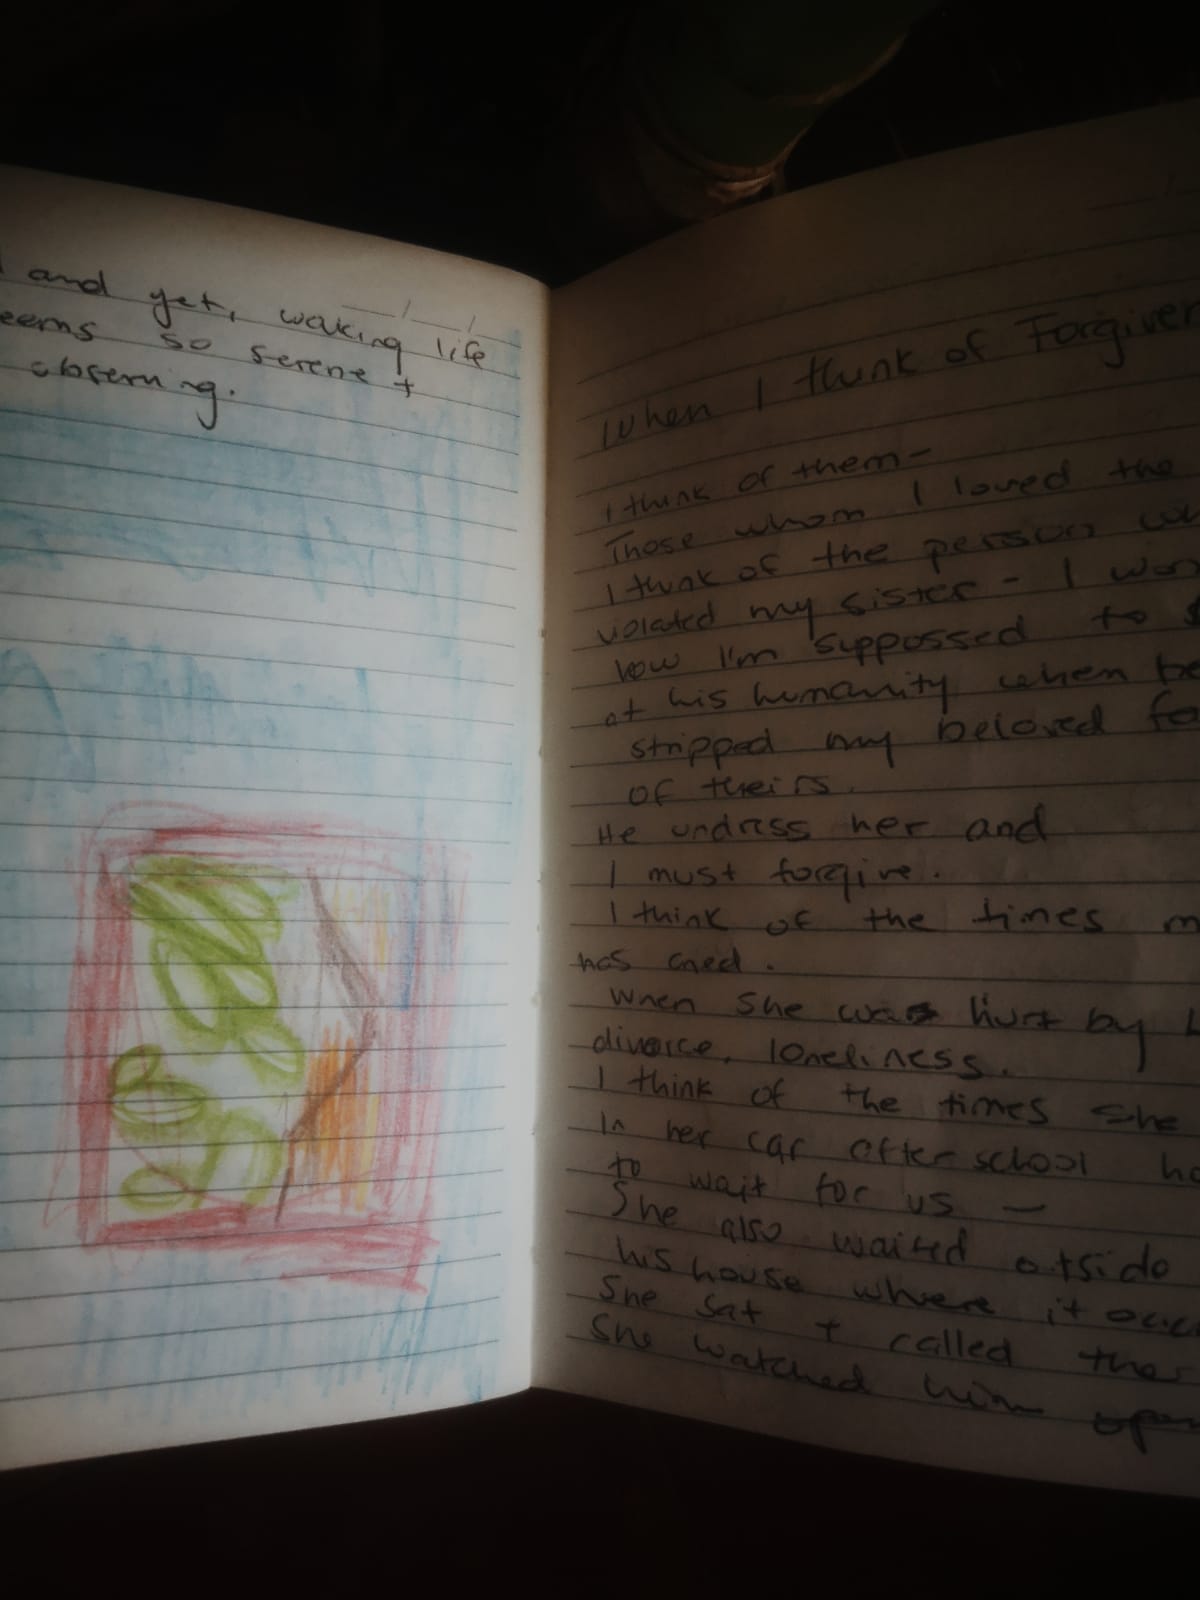 and yet, waking life
seems so serene +
observing.
When I think of Forgiven
I think of them-
Those whom I loved the
I think of the person
violated my sister - I
how I'm suppossed to
at his humanity when
stripped my beloved
of theirs.
He undress her and
I must forgive.
I think of the times
has cried.
When she was hurt by
divorce, loneliness.
I think of the times she
In her car after school
to wait for us -
She also waited otside
his house where it
She sat + called the
She watched him